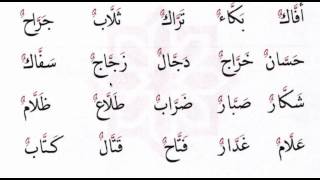 جَرَّاحٌ ثَلَّابٌ تَرَّاكٌ بَكَّاءٌ أَفَّاكٌ
سَفَّاكٌ زَجَّاجٌ دَجَّالٌ خَرَّاجٌ حَسَّانٌ
ظَلَّامٌ طَلَّاعٌ ضَرَّابٌ صَبَّارٌ شَكَّارٌ
كَتَّابٌ قَتَّالٌ فَتَّاحٌ غَدَّارٌ عَلَّامٌ